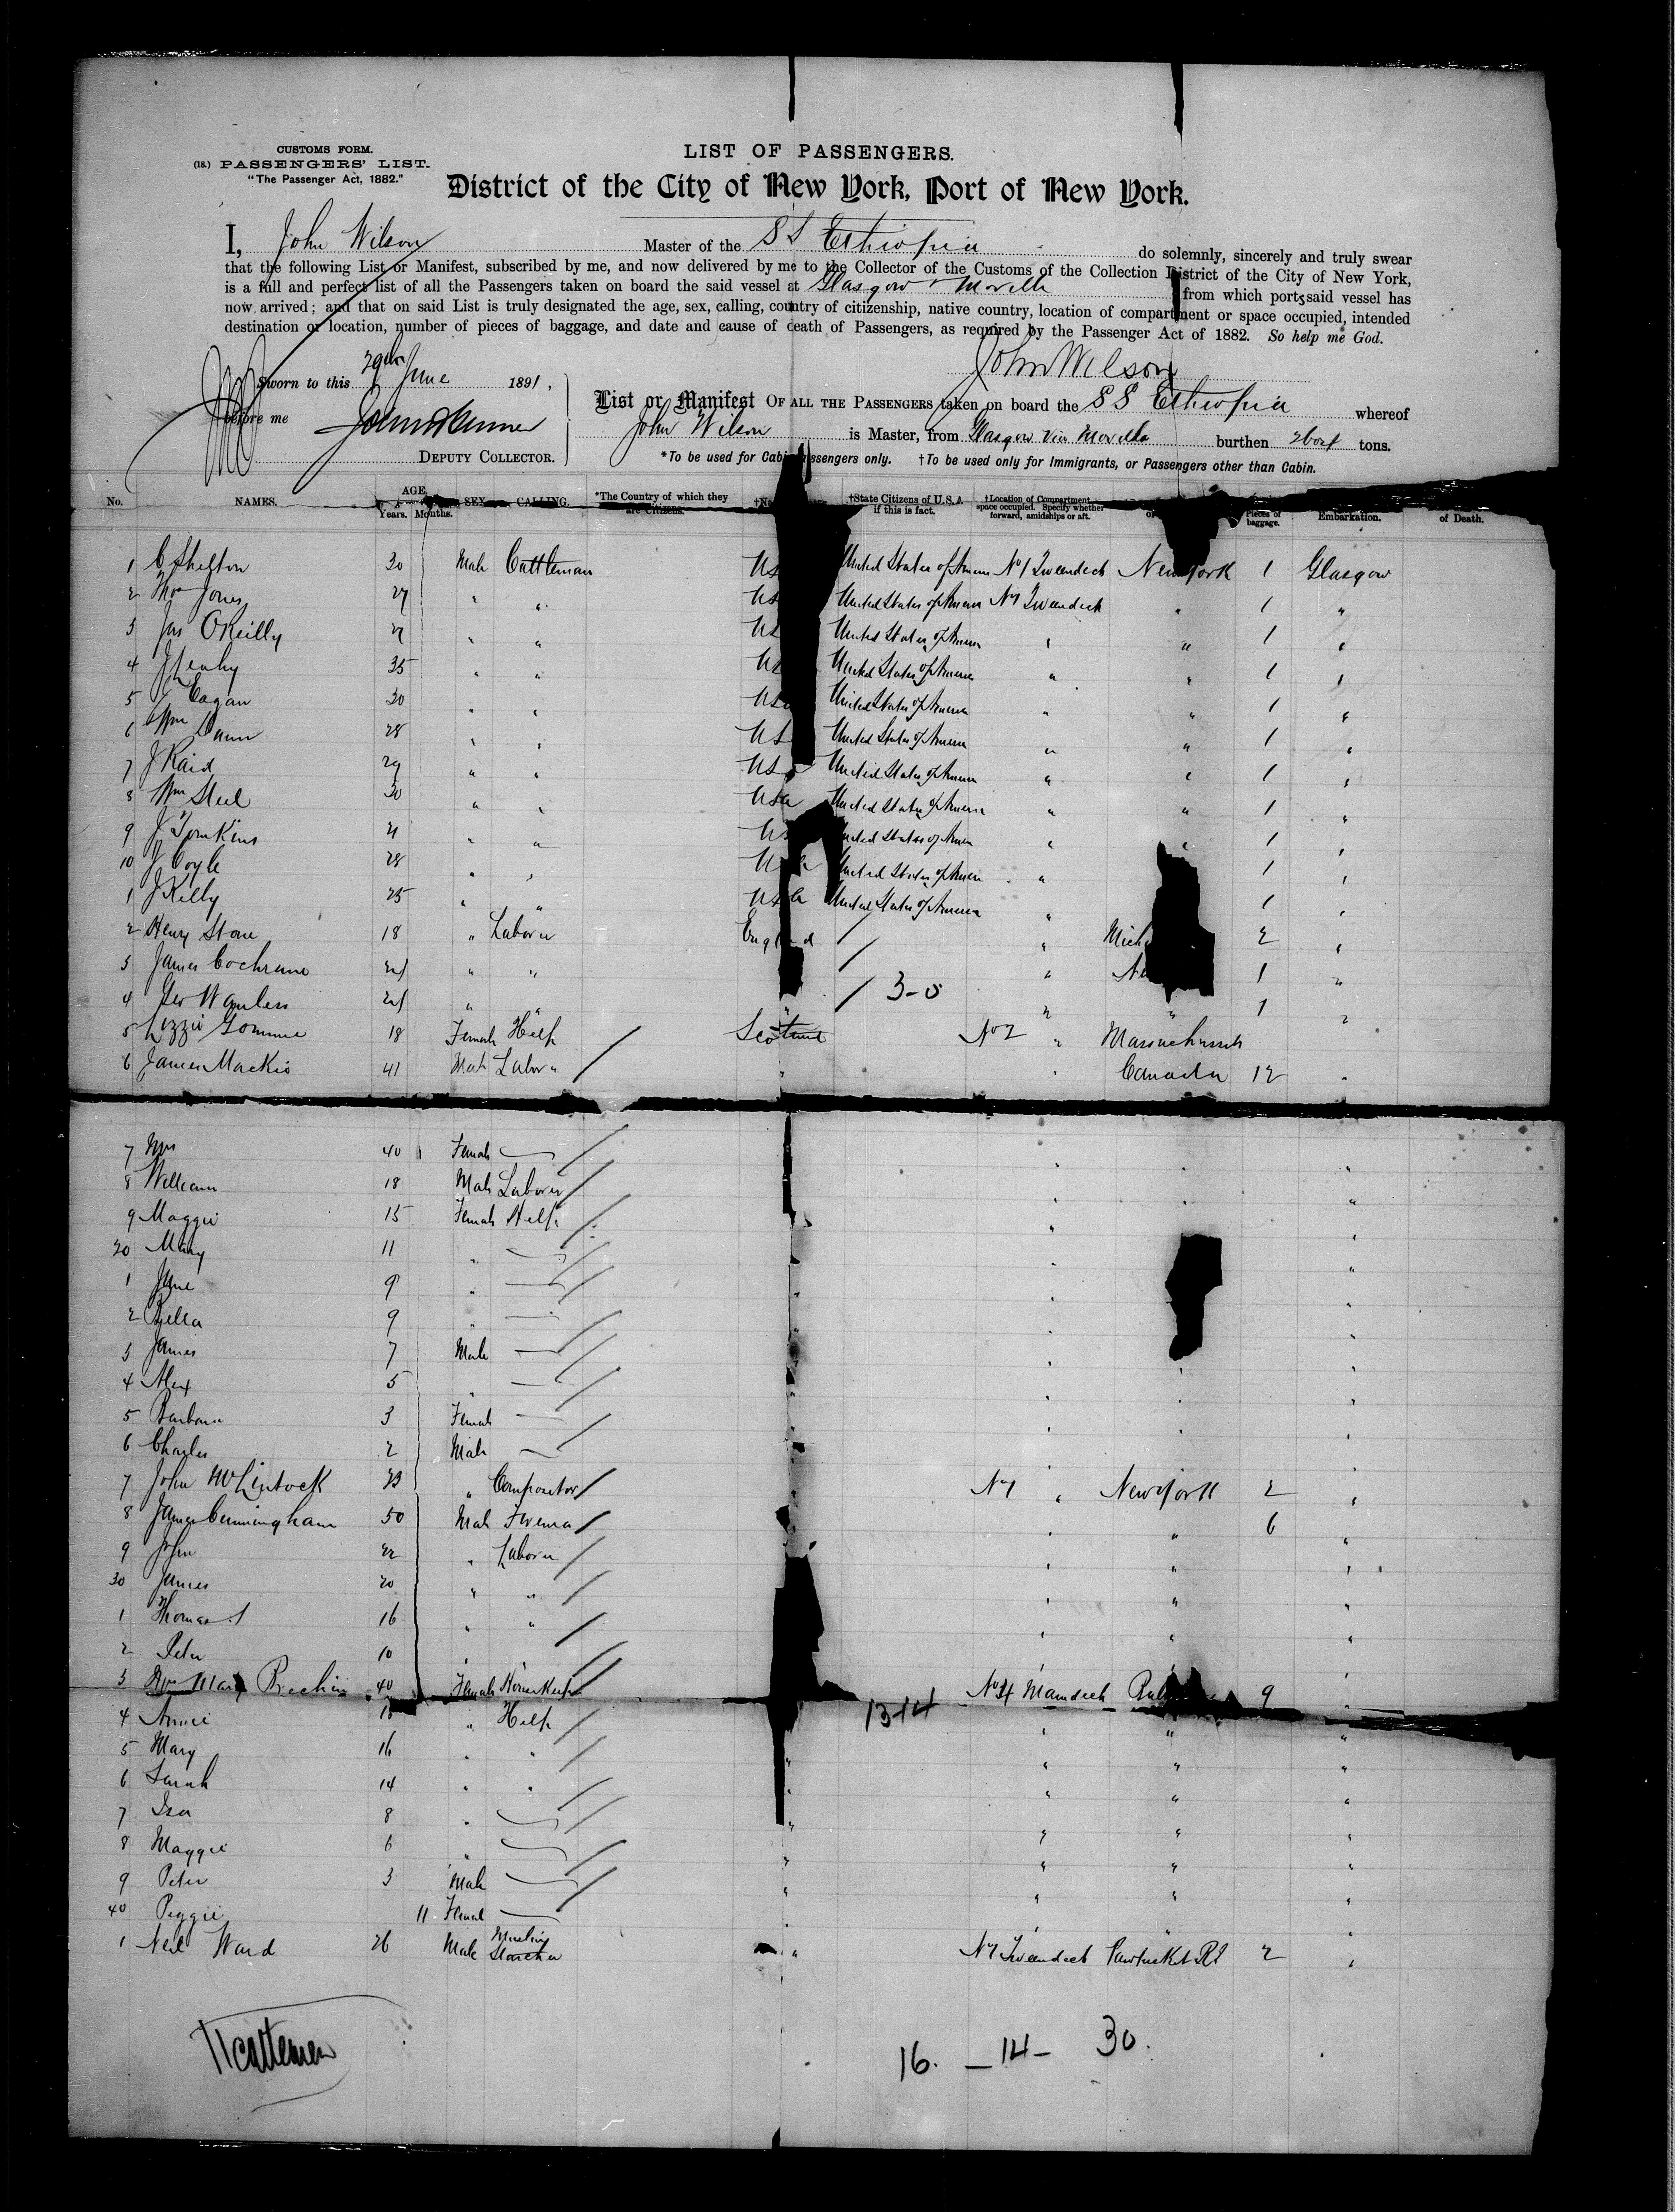 CUSTOMS FORM.
(18.) PASSENGERS' LIST.
"The Passenger Act, 1882."
LIST OF PASSENGERS.
District of the City of New York, Port of New York.
I, John Wilson Master of the S S Ethiopia do solemnly, sincerely and truly swear
that the following List or Manifest, subscribed by me, and now delivered by me to the Collector of the Customs of the Collection District of the City of New York,
is a full and perfect list of all the Passengers taken on board the said vessel at Glasgow & Moville from which ports said vessel has
now arrived; and that on said List is truly designated the age, sex, calling, country of citizenship, native country, location of compartment or space occupied, intended
destination or location, number of pieces of baggage, and date and cause of death of Passengers, as required by the Passenger Act of 1882. So help me God.
John Wilson
Sworn to this 29th June 1891,
before me
DEPUTY COLLECTOR.
List or Manifest OF ALL THE PASSENGERS taken on board the S S Ethiopia whereof
John Wilson is Master, from Glasgow via Moville burthen tons.
*To be used for Cabin Passengers only. †To be used only for Immigrants, or Passengers other than Cabin.
No. NAMES. AGE. Years. Months. SEX. CALLING. *The Country of which they are Citizens. †State Citizens of U.S.A if this is fact. †Location of Compartment space occupied. Specify whether forward, amidships or aft. Pieces of baggage. Embarkation. of Death.
1 C Shelton 30 Male Cattleman US United States of Amern No 1 Tweendeck New York 1 Glasgow
2 Thos Jones 27 " " US United States of Amern No 1 Tweendeck " 1 "
3 Jas OReilly " " US United States of Amern " " 1 "
4 J Leahy 35 " " US United States of America " " 1 "
5 Eagan 30 " " US United States of America " " 1 "
6 Wm 28 " " US United States of America " " 1 "
7 J Raid 29 " " US United States of Amern " " 1 "
8 Wm Steel 30 " " USa United States of America " " 1 "
9 J Tomkins 21 " " US United States of Amern " " 1 "
10 J Coyle 28 " " U a United States of Amern " 1 "
1 J Kelly 25 " " US a United States of America " 1 "
2 Henry Stone 18 " Laborer Engl d " Mich 2 "
3 James Cochrane 21 " " " Ne 1 "
4 Geo Wanless 21 " " " 3-0 " " 1 "
5 Lizzie 18 Female Help Scotland No 2 " Massachusetts
6 James Mackie 41 Male Labor " " " Canada 12 "
7 Mrs 40 Female " " "
8 William 18 Male Laborer " " "
9 Maggie 15 Female Help " "
20 Mary 11 " " "
1 Jane 9 " " " "
2 Bella 9 " " " "
3 James 7 Male " " " "
4 Alex 5 " " " " "
5 Barbara 3 Female " " "
6 Charles 2 Male " " "
7 John McLintock 23 " Compositor No 1 " New York 2 "
8 James Cunningham 50 Male Fireman " " 6 "
9 John 22 " Laborer " " "
30 James 20 " " " " "
1 Thomas 16 " " " " "
2 Peter 10 " " "
3 Mrs Mary Brechin 40 Female Housekeeper No 4 Maindeck 9 "
4 Annie " Help 13-14 " " "
5 Mary 16 " " " " " "
6 Sarah 14 " " " " "
7 Isa 8 " " " " "
8 Maggie 6 " " " " "
9 Peter 3 Male " " " "
40 Peggie 11 Female " " "
1 Neil Ward 26 Male Muslin Starcher " No 1 Tweendeck Pawtucket RI 2 "
11 cattlemen
16. – 14 – 30.